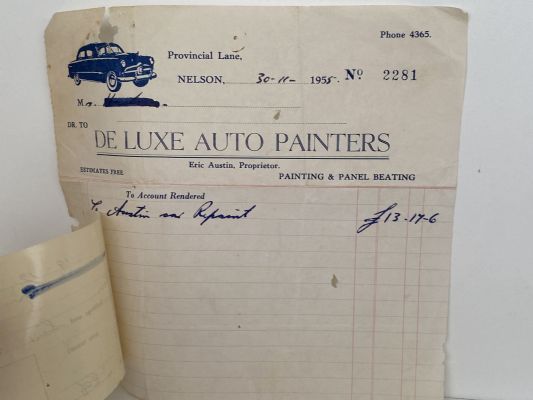 Phone 4365.
Provincial Lane,
NELSON, 30-11- 1955 No 2281
M
DR. TO
DE LUXE AUTO PAINTERS
Eric Austin, Proprietor.
ESTIMATES FREE PAINTING & PANEL BEATING
To Account Rendered
To Austin car Repaint £13-17-6